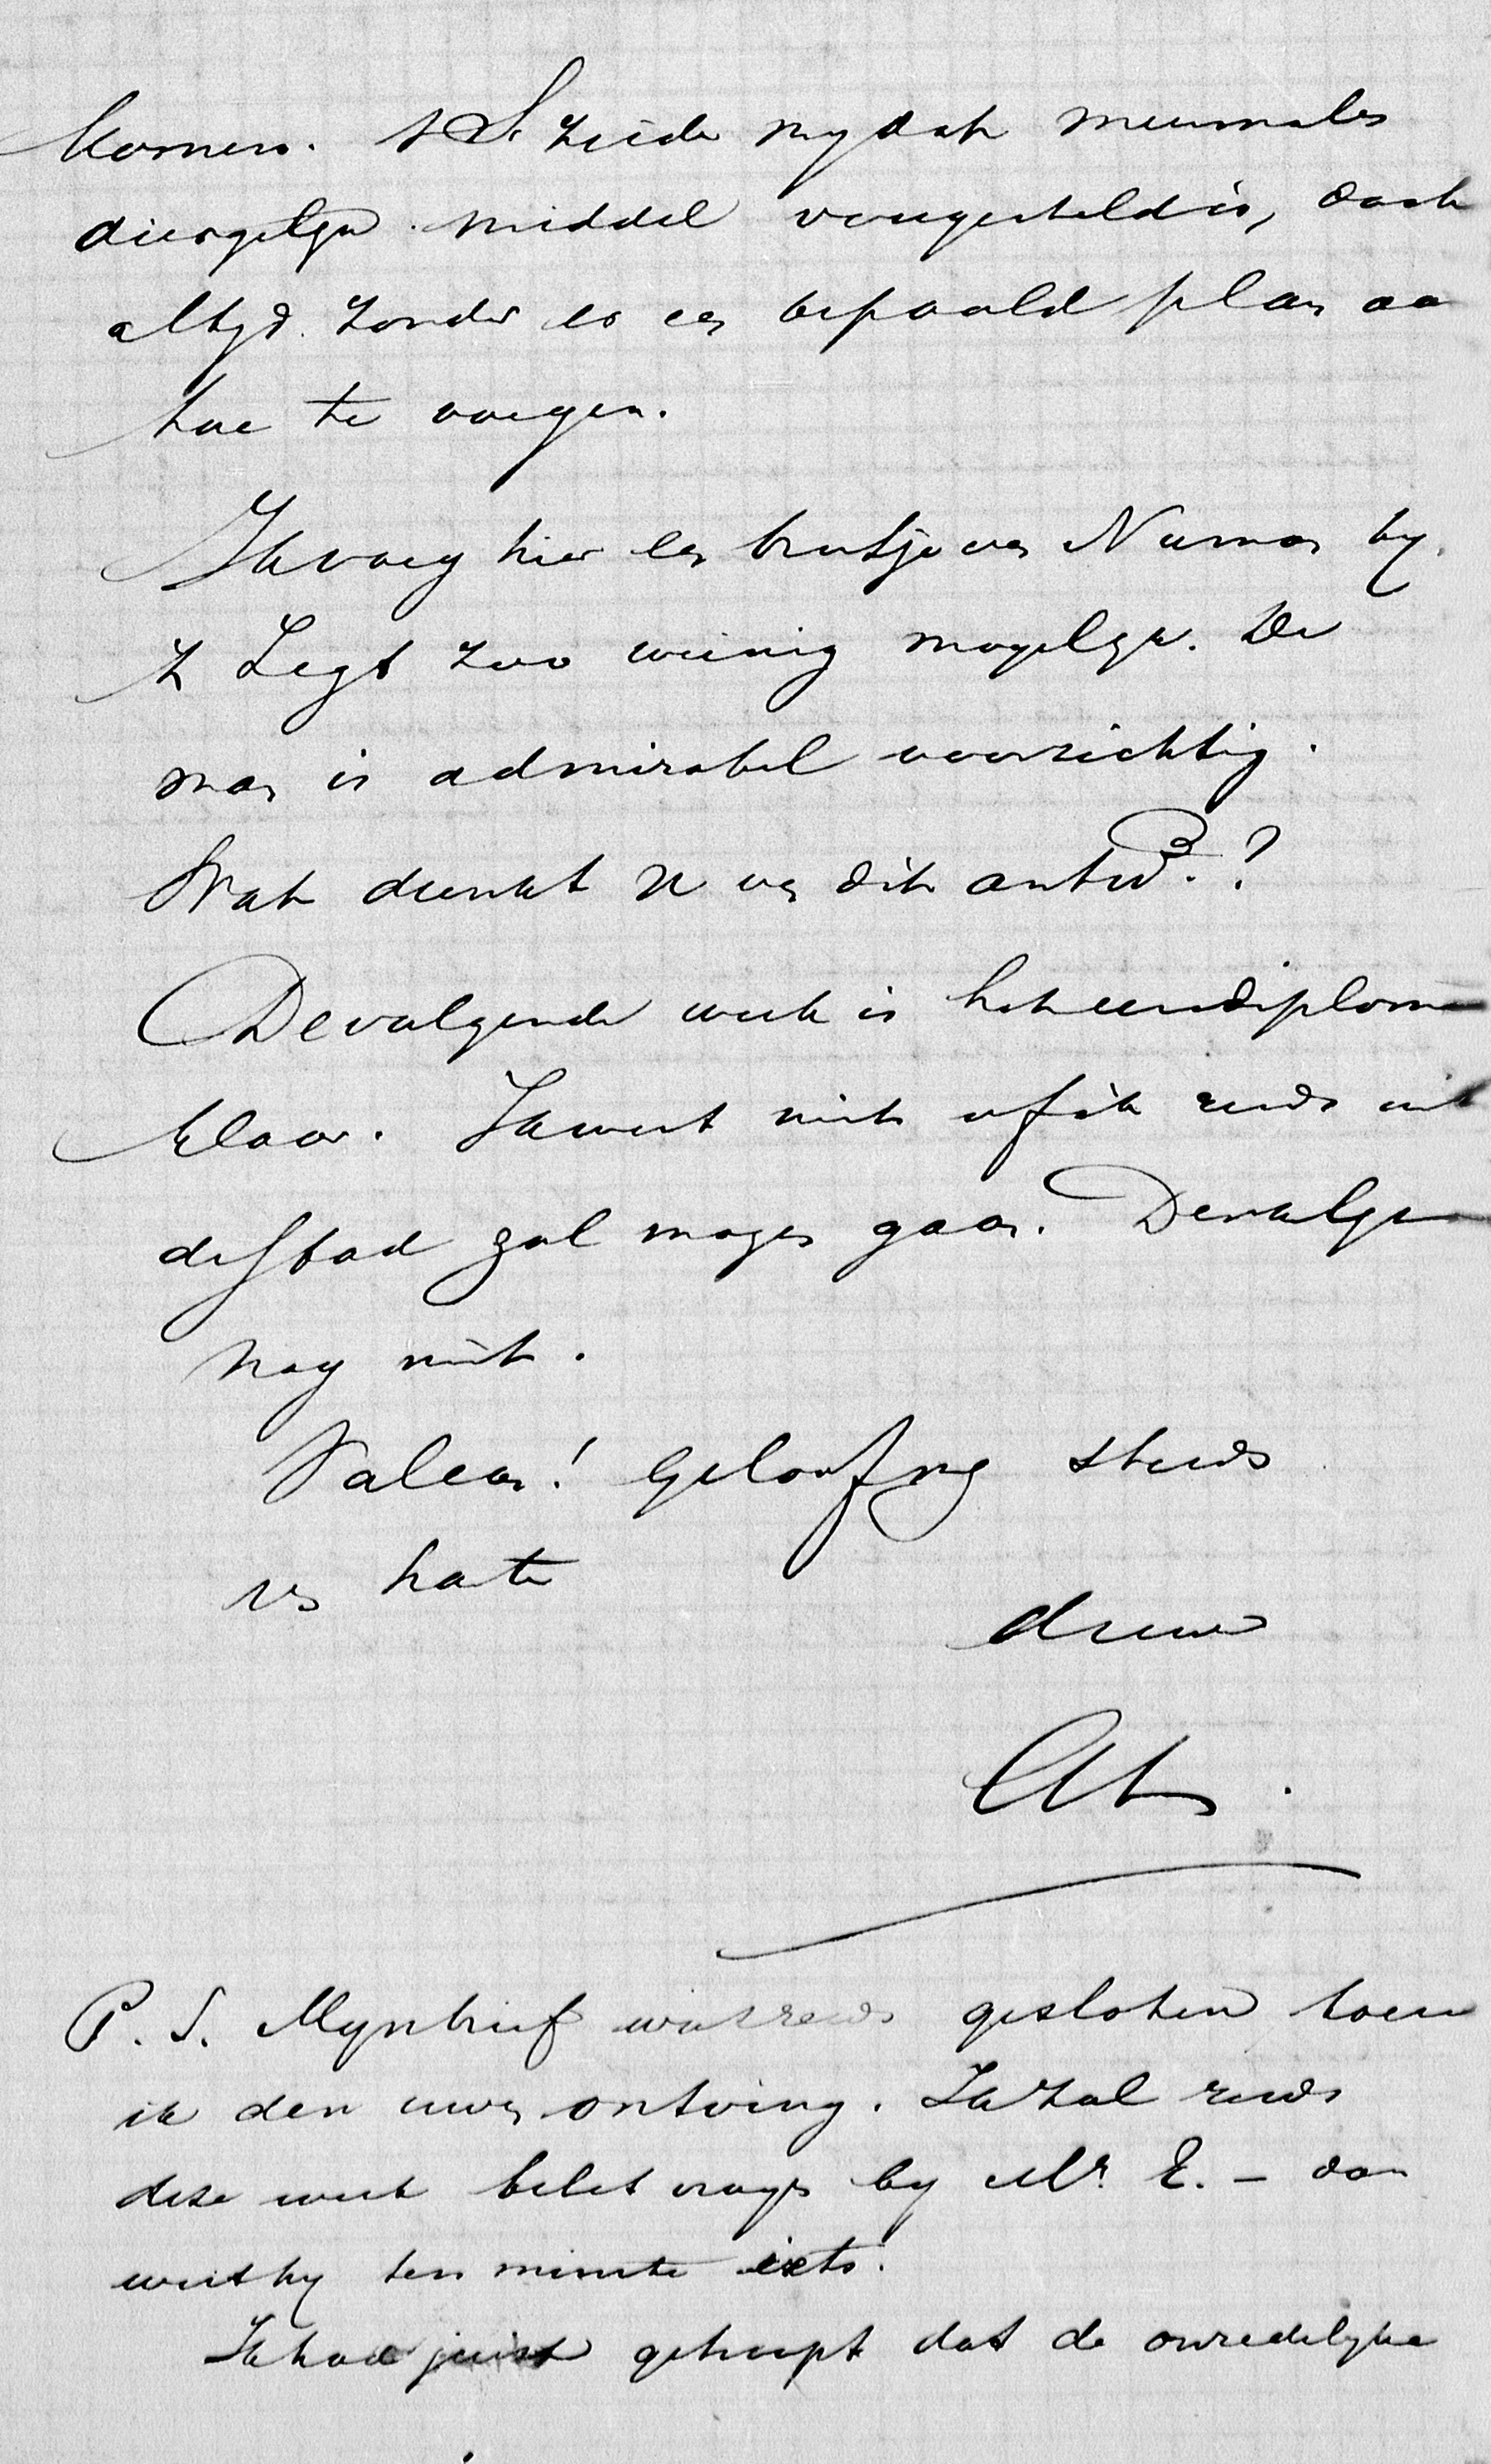 komen. v S. zeide my dat meermalen
diergelyk middel voorgesteld is, doch
altyd zonder er een bepaald plan aa
toe te voegen.
Ik voeg hier een briefje van Numan by.
Z Zegt zoo weinig mogelyk. De
man is admirabel voorzichtig.
Wat dunkt U van dit antwd.?
De volgende week is het eerediploma
klaar. Ik weet niet of ik reeds uit
de stad zal mogen gaan. Denkelyk
nog niet.
Valeas! Geloof my steeds
Us hart
druw
P.S. Myn brief was reeds gesloten toen
ik den uwen ontving. Ik zal reeds
deze week belet vragen by Mr. E. – dan
weet hy ten minste iets.
Ik had juist gehoopt dat de onredelyke